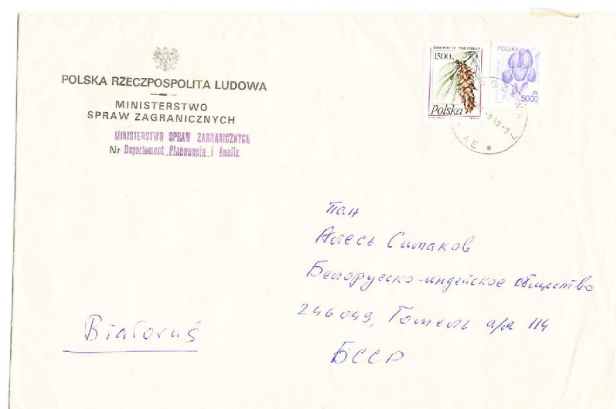 POLSKA RZECZPOSPOLITA LUDOWA
MINISTERSTWO
SPRAW ZAGRANICZNYCH
MINISTERSTWO SPRAW ZAGRANICZNYCH
Nr Departament Planowania i Analiz
1500 zł
Polska
POLSKA
5000
Пан
Алесь Симаков
Белорусско-индейское общество
246049, Гомель а/я 114
БССР
Białoruś